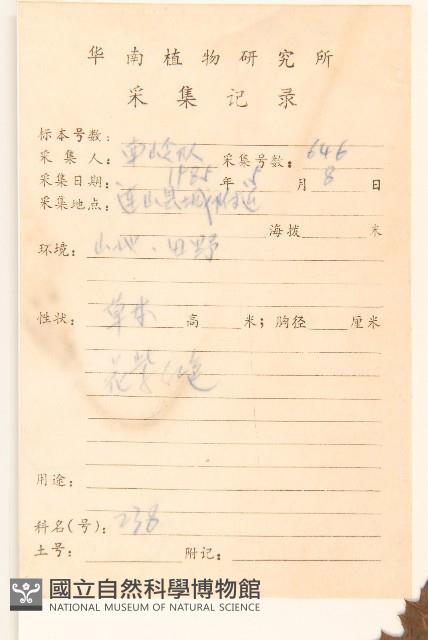 华南植物研究所
采集记录
标本号数:
采集人: 南岭队 采集号数: 646
采集日期: 1985 年 5 月 8 日
采集地点: 连山县城附近
海拔 米
环境: 山地、田野
性状: 草本 高 米; 胸径 厘米
花紫红色
用途:
科名(号): 238
土号: 附记:
國立自然科學博物館
NATIONAL MUSEUM OF NATURAL SCIENCE